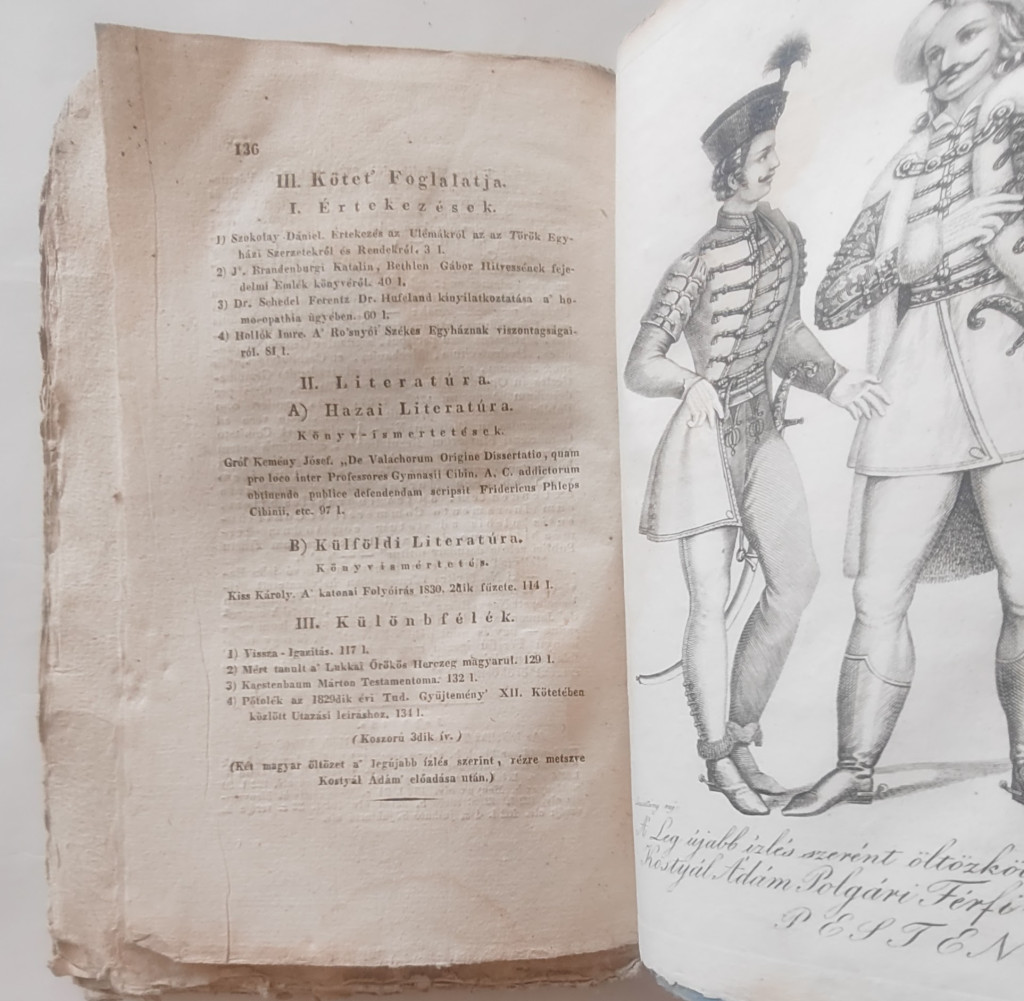 136
III. Kötet' Foglalatja.
I. Értekezések.
1) Szokolay Dániel. Értekezés az Ulémákról az az Török Egy-
házi Szerzetekről és Rendekről. 3 l.
2) J'. Brandenburgi Katalin, Bethlen Gábor Hitvessének feje-
delmi Emlék könyvéről. 40 l.
3) Dr. Schedel Ferentz Dr. Hufeland kinyilatkoztatása a' ho-
moeopathia ügyében. 60 l.
4) Hollók Imre. A' Ro'snyói Székes Egyháznak viszontagságai-
ról. 81 l.
II. Literatúra.
A) Hazai Literatúra.
Könyv-ismertetések.
Gróf Kemény Jósef. „De Valachorum Origine Dissertatio, quam
pro loco inter Professores Gymnasii Cibin. A. C. addictorum
obtinendo publice defendendam scripsit Fridericus Phleps
Cibinii, etc. 97 l.
B) Külföldi Literatúra.
Könyvismértetés.
Kiss Károly. A' katonai Folyóirás 1830. 2dik füzete. 114 l.
III. Különbfélék.
1) Vissza-Igazítás. 117 l.
2) Mért tanult a' Lukkai Örökös Herczeg magyarul. 129 l.
3) Karstenbaum Márton Testamentoma. 132 l.
4) Pótolék az 1829dik évi Tud. Gyűjtemény' XII. Kötetében
közlött Utazási leíráshoz. 134 l.
(Koszorú 3dik ív.)
(Két magyar öltözet a' legújabb ízlés szerint, rézre metszve
Kostyál Ádám' előadása után.)
Leg újabb ízlés szerént öltözkö
Kostyál Ádám Polgári Férfi
PESTEN